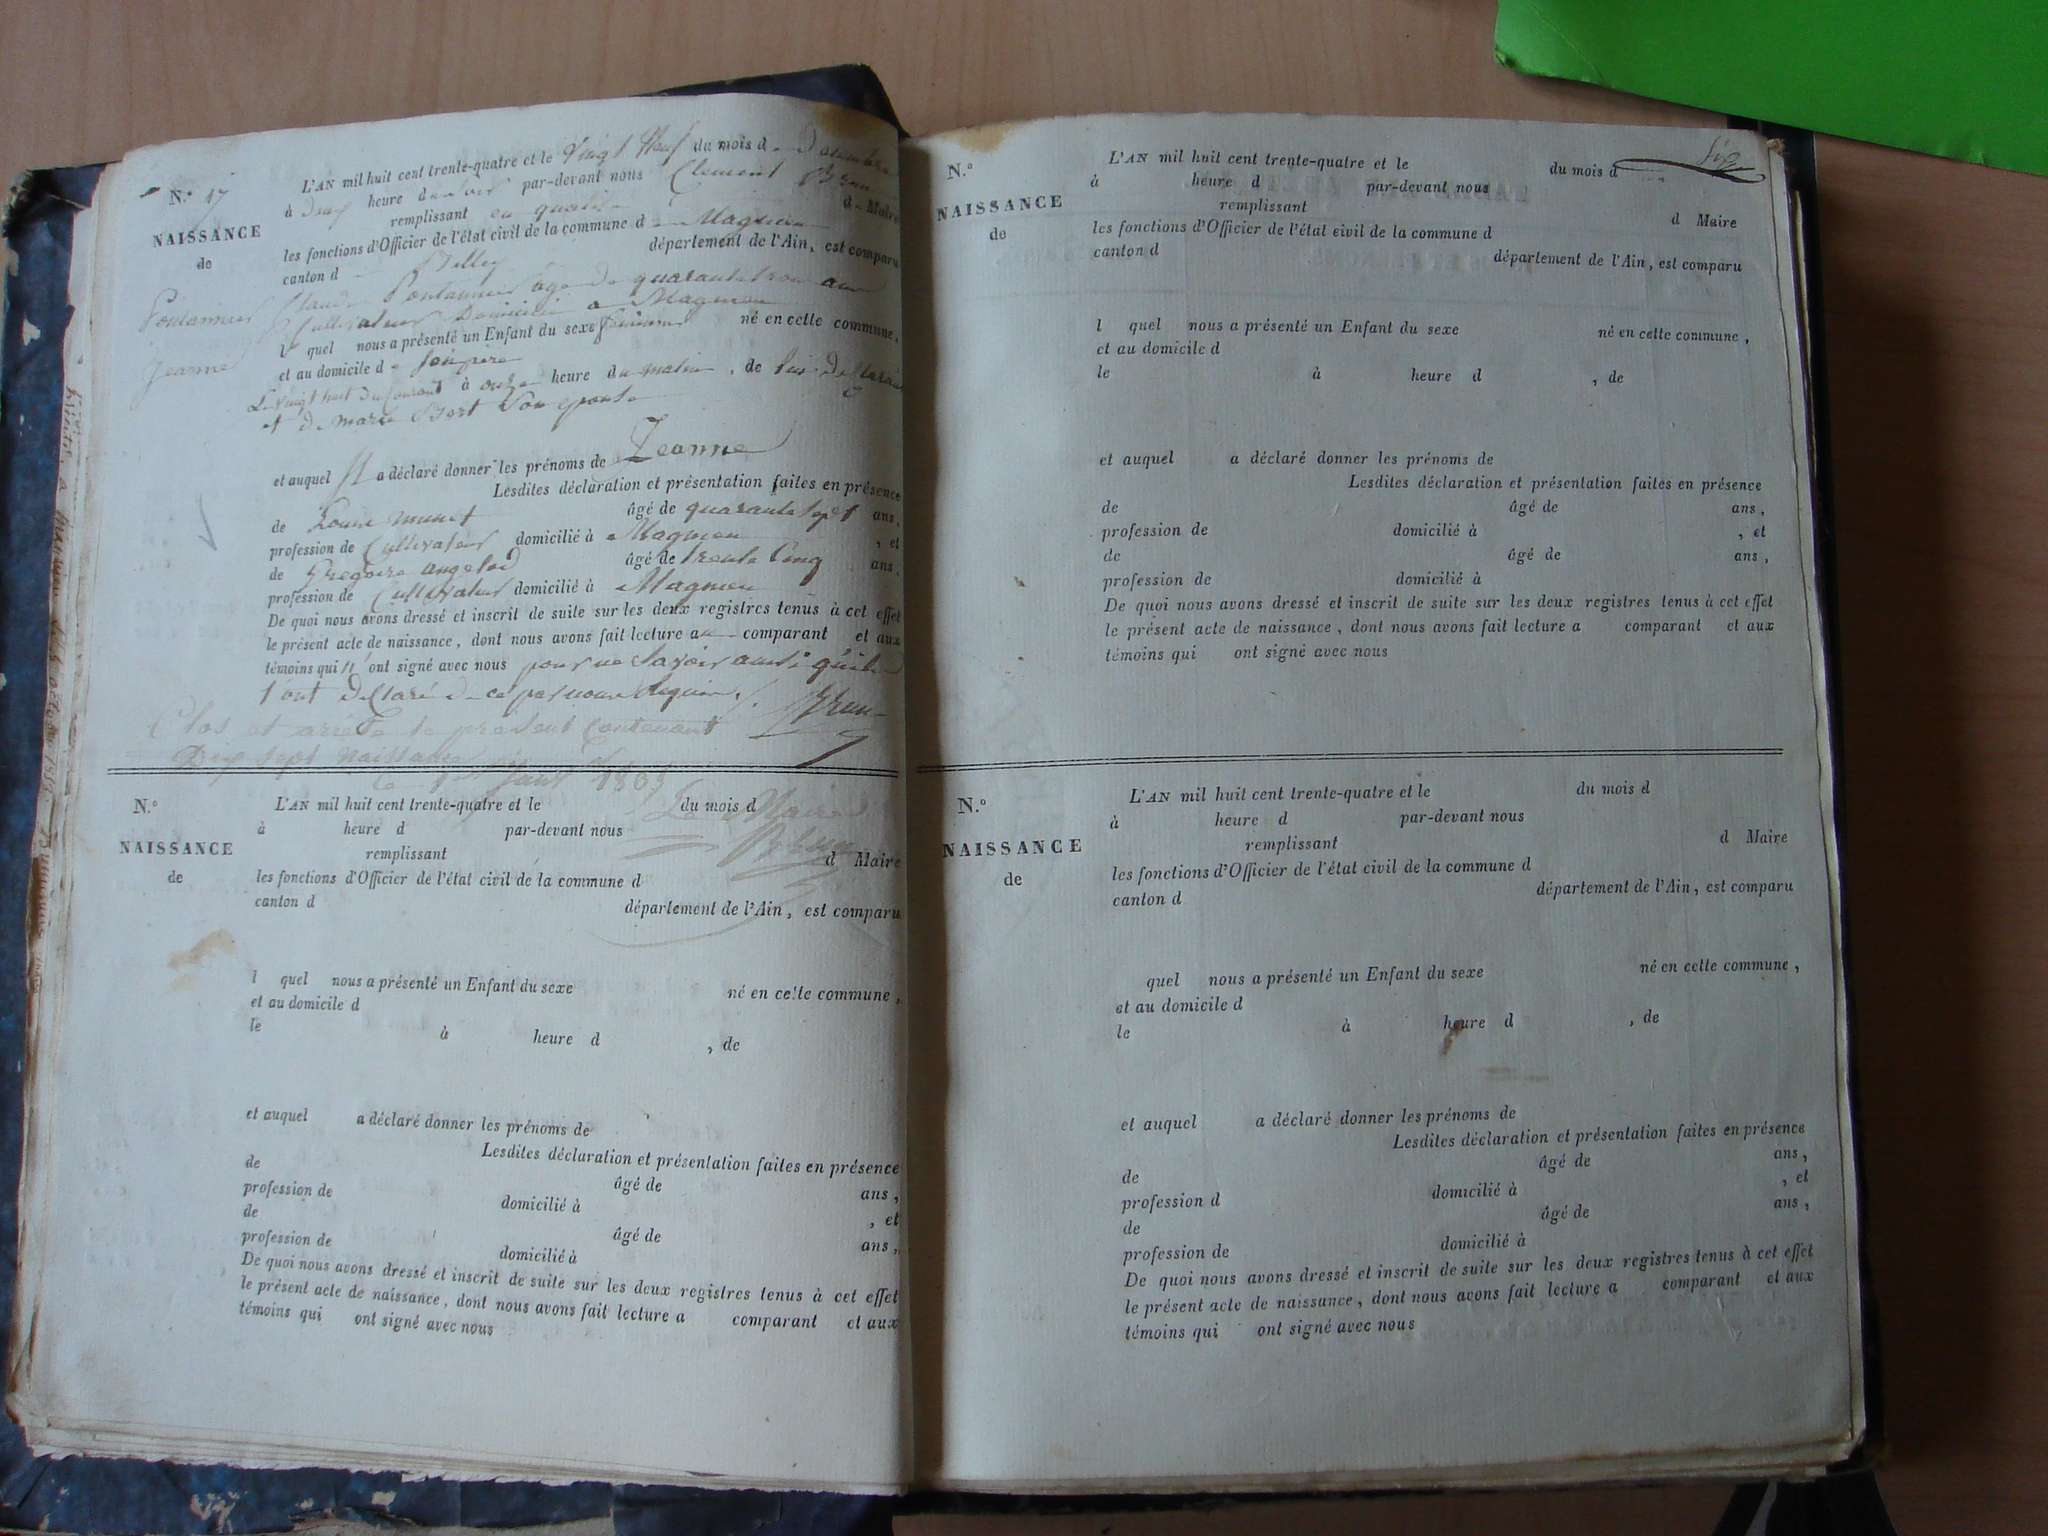 N.° 17
NAISSANCE
de
Pontannier
Jeanne
L'AN mil huit cent trente-quatre et le vingt Neuf du mois d
à deux heure du soir par-devant nous Clement Brun
remplissant en qualité d Maire
les fonctions d'Officier de l'état civil de la commune d Magnieu
canton d Belley département de l'Ain, est comparu
Claude Pontannier âgé de quarante trois ans
Cultivateur Domicilié a Magnieu
l quel nous a présenté un Enfant du sexe feminin né en cette commune,
et au domicile d Son père
Le vingt huit du Courant à onze heure du matin, de lui déclarant
et de marie Bort Son epouse
et auquel Il a déclaré donner les prénoms de Jeanne
Lesdites déclaration et présentation faites en présence
de Louis âgé de quarante sept ans,
profession de Cultivateur domicilié à Magnieu , et
de Gregoire âgé de trente Cinq ans,
profession de Cultivateur domicilié à Magnieu
De quoi nous avons dressé et inscrit de suite sur les deux registres tenus à cet effet
le présent acte de naissance, dont nous avons fait lecture au comparant et aux
témoins qui n'ont signé avec nous pour ne Savoir ainsi qu'ils
l'ont déclaré de ce par nous Requis. Brun
Clos et arrêté le présent Contenant
Dix sept Naissances
Le Maire
Brun
N.°
NAISSANCE
de
L'AN mil huit cent trente-quatre et le du mois d
à heure d par-devant nous
remplissant d Maire
les fonctions d'Officier de l'état civil de la commune d
canton d département de l'Ain, est comparu
l quel nous a présenté un Enfant du sexe né en cette commune,
et au domicile d
le à heure d , de
et auquel a déclaré donner les prénoms de
Lesdites déclaration et présentation faites en présence
de âgé de ans,
profession de domicilié à , et
de âgé de ans,
profession de domicilié à
De quoi nous avons dressé et inscrit de suite sur les deux registres tenus à cet effet
le présent acte de naissance, dont nous avons fait lecture a comparant et aux
témoins qui ont signé avec nous
N.°
NAISSANCE
de
L'AN mil huit cent trente-quatre et le du mois d
à heure d par-devant nous
remplissant d Maire
les fonctions d'Officier de l'état civil de la commune d
canton d département de l'Ain, est comparu
l quel nous a présenté un Enfant du sexe né en cette commune,
et au domicile d
le à heure d , de
et auquel a déclaré donner les prénoms de
Lesdites déclaration et présentation faites en présence
de âgé de ans,
profession de domicilié à , et
de âgé de ans,
profession de domicilié à
De quoi nous avons dressé et inscrit de suite sur les deux registres tenus à cet effet
le présent acte de naissance, dont nous avons fait lecture a comparant et aux
témoins qui ont signé avec nous
N.°
NAISSANCE
de
L'AN mil huit cent trente-quatre et le du mois d
à heure d par-devant nous
remplissant d Maire
les fonctions d'Officier de l'état civil de la commune d
canton d département de l'Ain, est comparu
quel nous a présenté un Enfant du sexe né en cette commune,
et au domicile d
le à heure d , de
et auquel a déclaré donner les prénoms de
Lesdites déclaration et présentation faites en présence
de âgé de ans,
profession d domicilié à , et
de âgé de ans,
profession de domicilié à
De quoi nous avons dressé et inscrit de suite sur les deux registres tenus à cet effet
le présent acte de naissance, dont nous avons fait lecture a comparant et aux
témoins qui ont signé avec nous